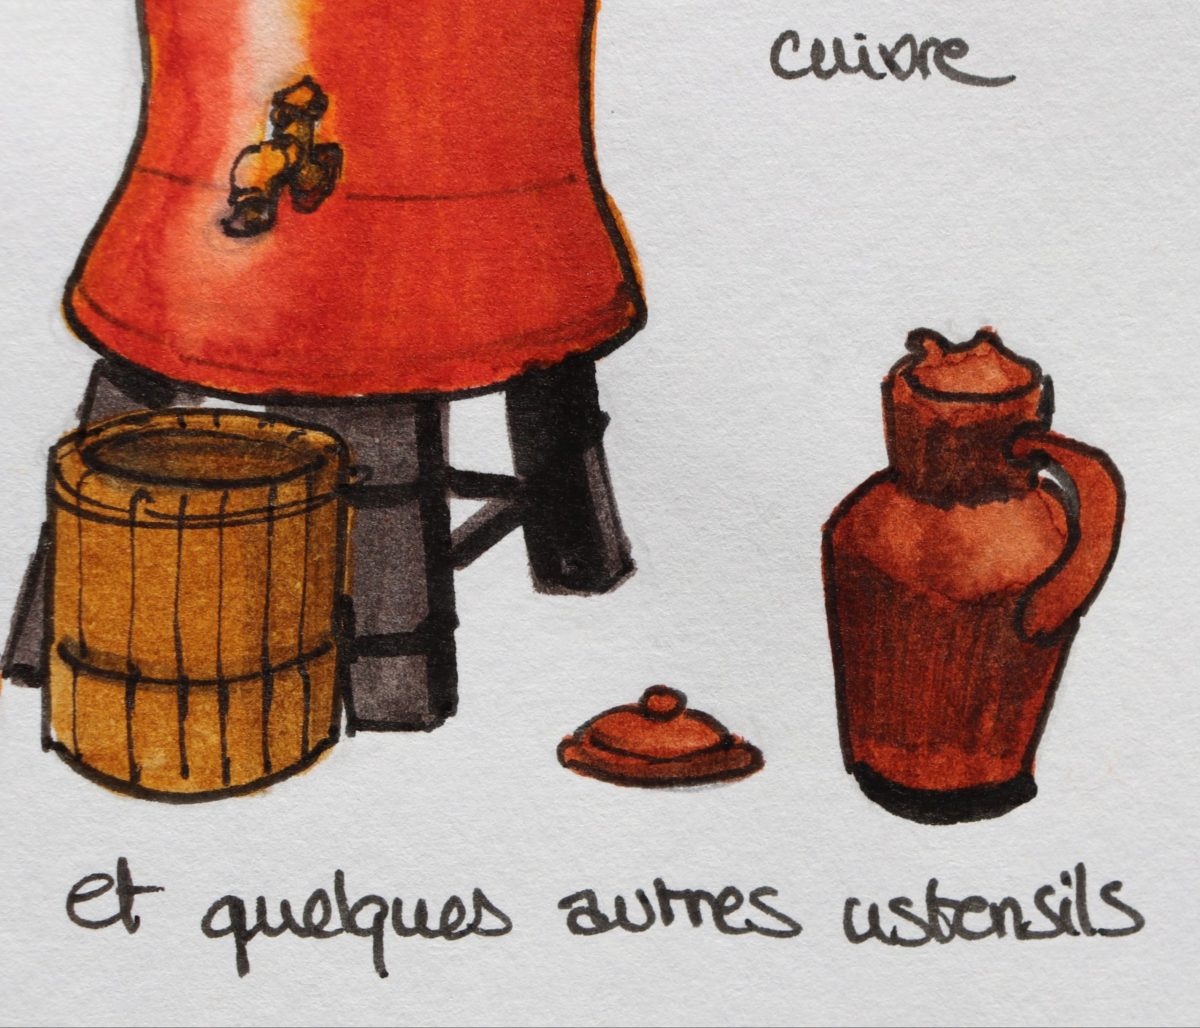 cuivre
et quelques autres ustensils